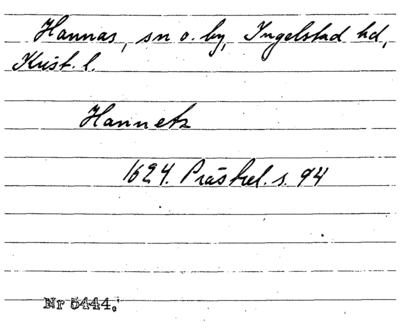 Hannas, sn o. by, Ingelstad hd,
Krist. l.
Hannetz
1624. Präst rel. s. 94
Nr 5444.